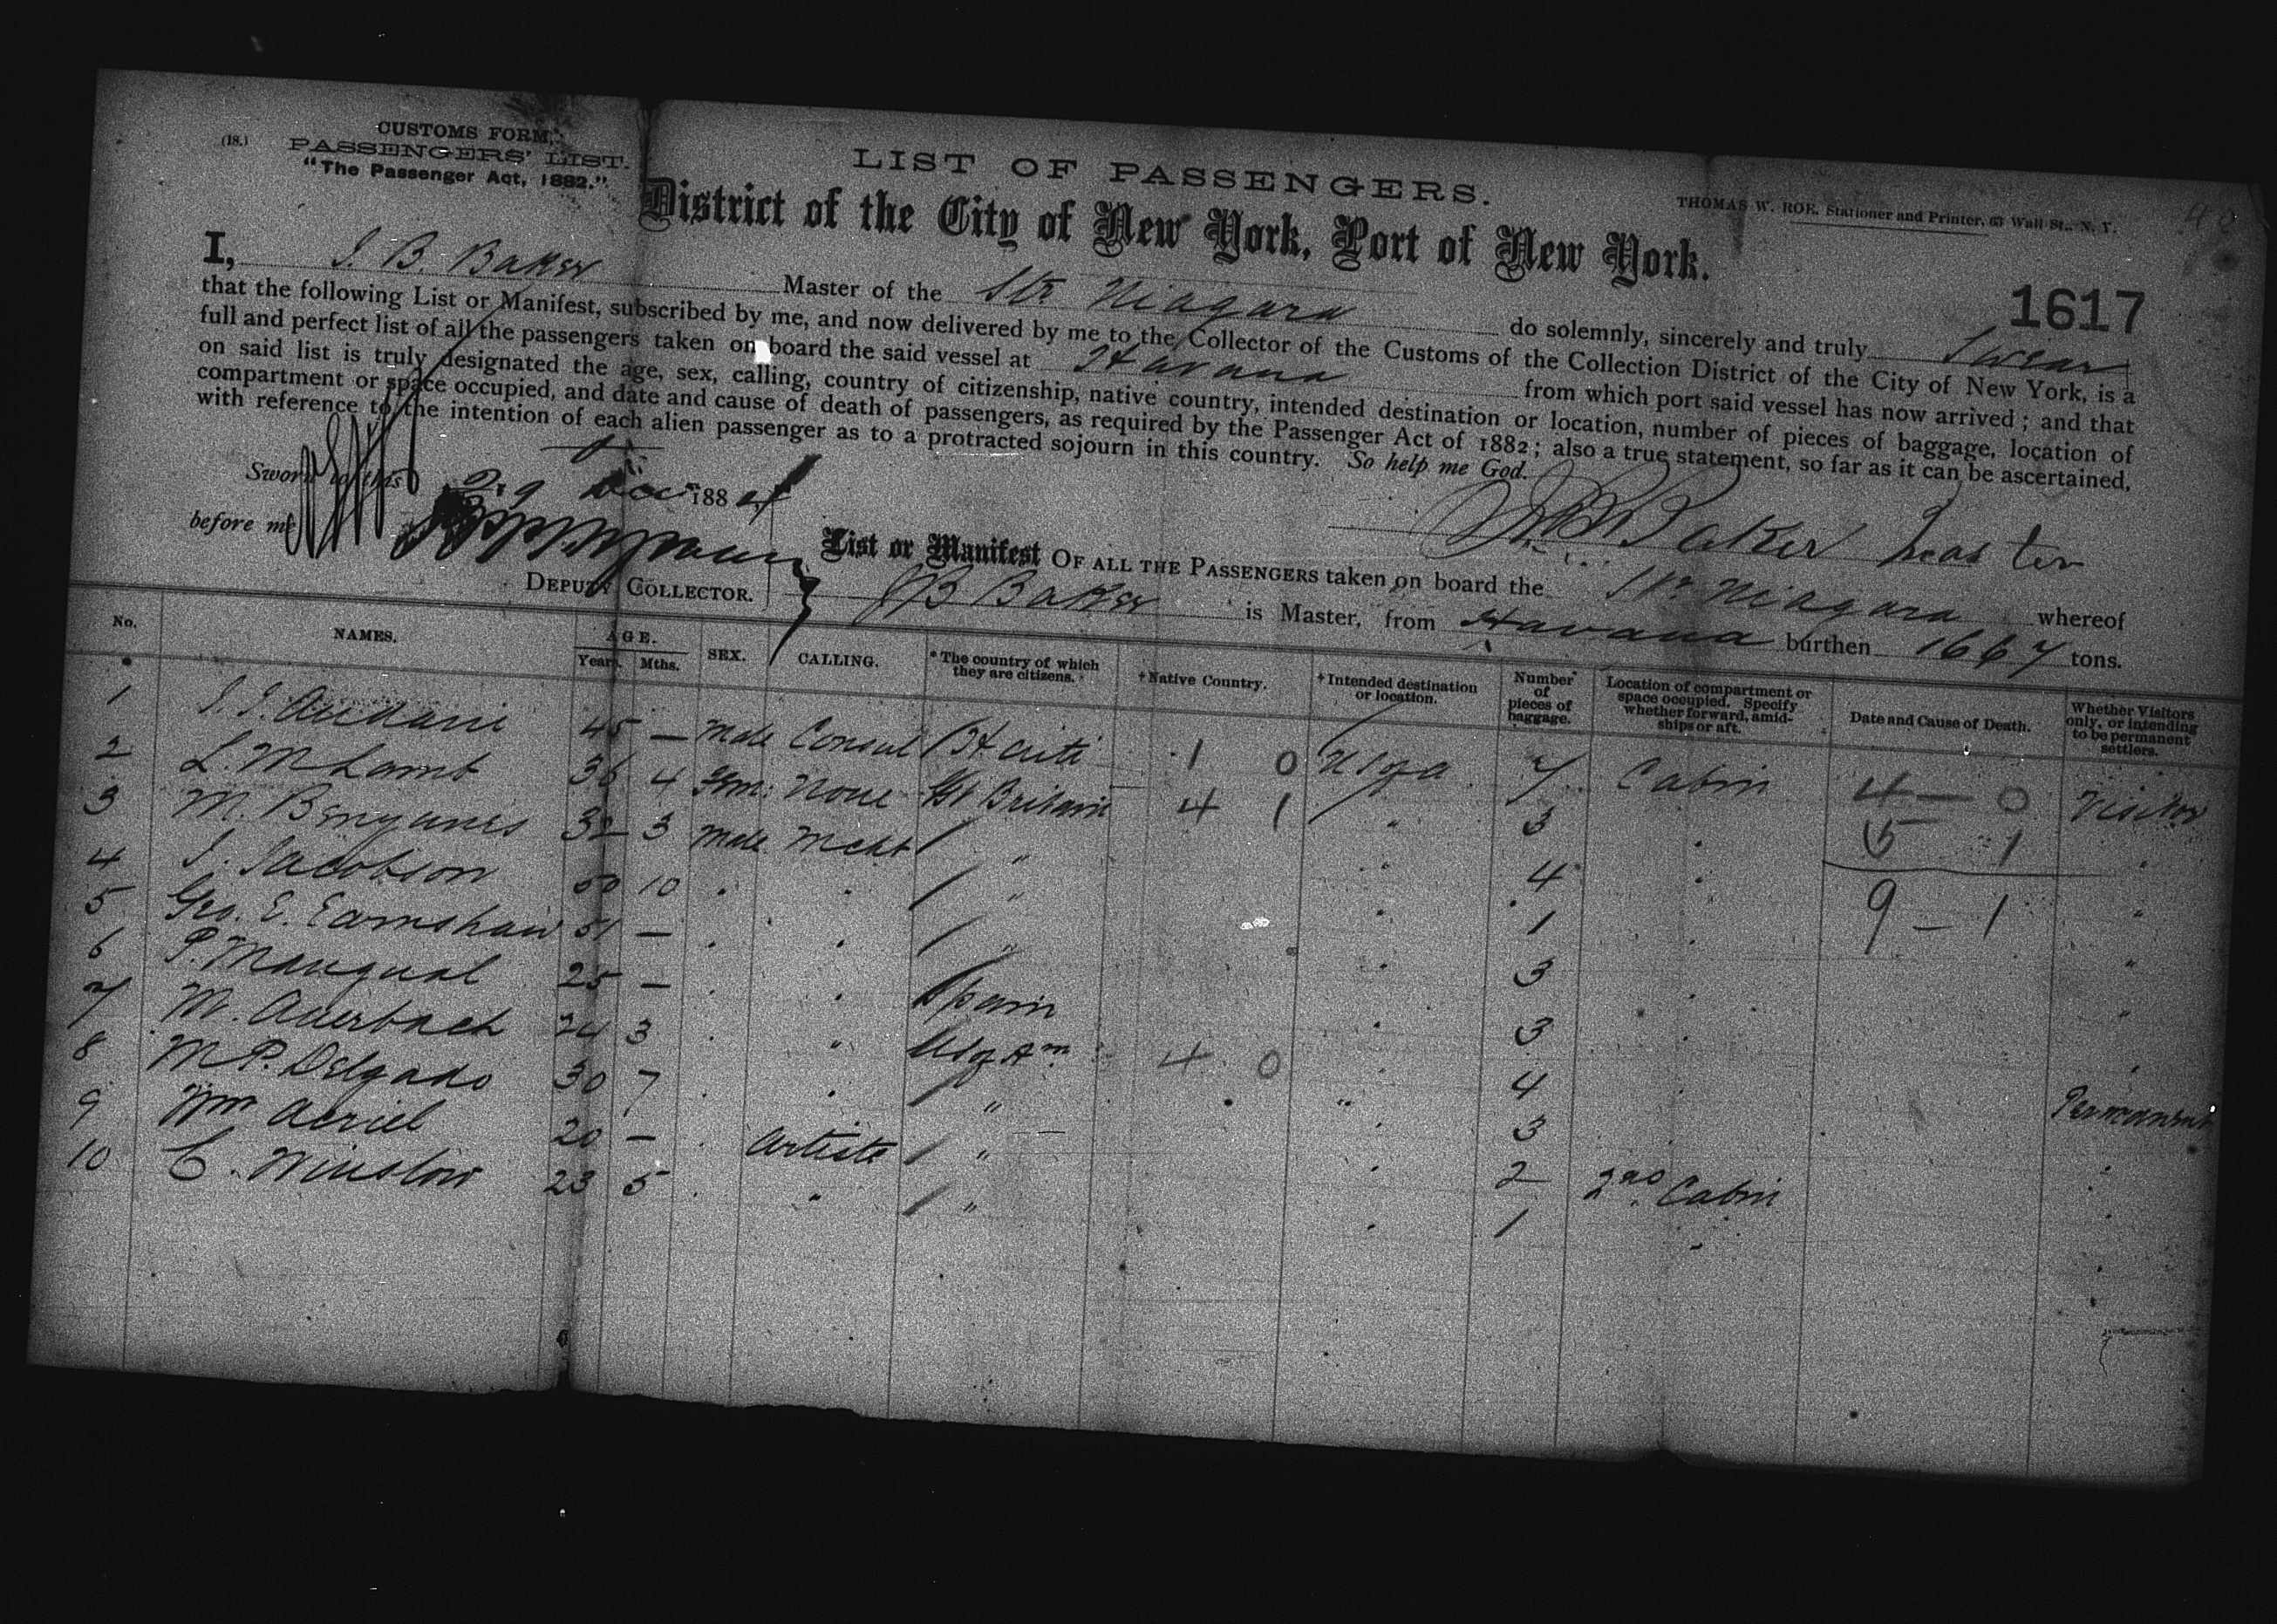 (18.) CUSTOMS FORM,
PASSENGERS' LIST.
"The Passenger Act, 1882."
LIST OF PASSENGERS.
THOMAS W. ROE, Stationer and Printer, 67 Wall St., N. Y.
District of the City of New York, Port of New York.
1617
I, J. B. Baker Master of the Str Niagara do solemnly, sincerely and truly swear
that the following List or Manifest, subscribed by me, and now delivered by me to the Collector of the Customs of the Collection District of the City of New York, is a
full and perfect list of all the passengers taken on board the said vessel at Havana from which port said vessel has now arrived; and that
on said list is truly designated the age, sex, calling, country of citizenship, native country, intended destination or location, number of pieces of baggage, location of
compartment or space occupied, and date and cause of death of passengers, as required by the Passenger Act of 1882; also a true statement, so far as it can be ascertained,
with reference to the intention of each alien passenger as to a protracted sojourn in this country. So help me God.
Sworn to this 29 Dec 1884
J B Baker Master
before me
DEPUTY COLLECTOR.
List or Manifest OF ALL THE PASSENGERS taken on board the Str Niagara whereof
J B Baker is Master, from Havana burthen 1667 tons.
No. NAMES. AGE. Years. Mths. SEX. CALLING. * The country of which they are citizens. † Native Country. † Intended destination or location. Number of pieces of baggage. Location of compartment or space occupied. Specify whether forward, amidships or aft. Date and Cause of Death. Whether Visitors only, or intending to be permanent settlers.
1 45 — Male Consul Haiti 1 0 U S of A 7 Cabin 4 — 0 Visitor
2 L. M Lamb 36 4 Fem: None Gt Britain 4 1 " 3 " 5 1 "
3 M. Benyunes 32 3 Male Mcht " " 4 " 9 — 1 "
4 J. Jacobson 50 10 " " " " 1 " "
5 Geo. E. Earnshaw 51 — " " " " 3 " "
6 P. Mangual 25 — " " Spain " 3 " "
7 M. Auerbach 24 3 " " U S of Am 4 0 " 4 " Permanent
8 M P. Delgado 30 7 " " " " 3 " "
9 Wm 20 — " Artiste " " 2 2nd Cabin "
10 C. Winslow 23 5 " " " " 1 " "